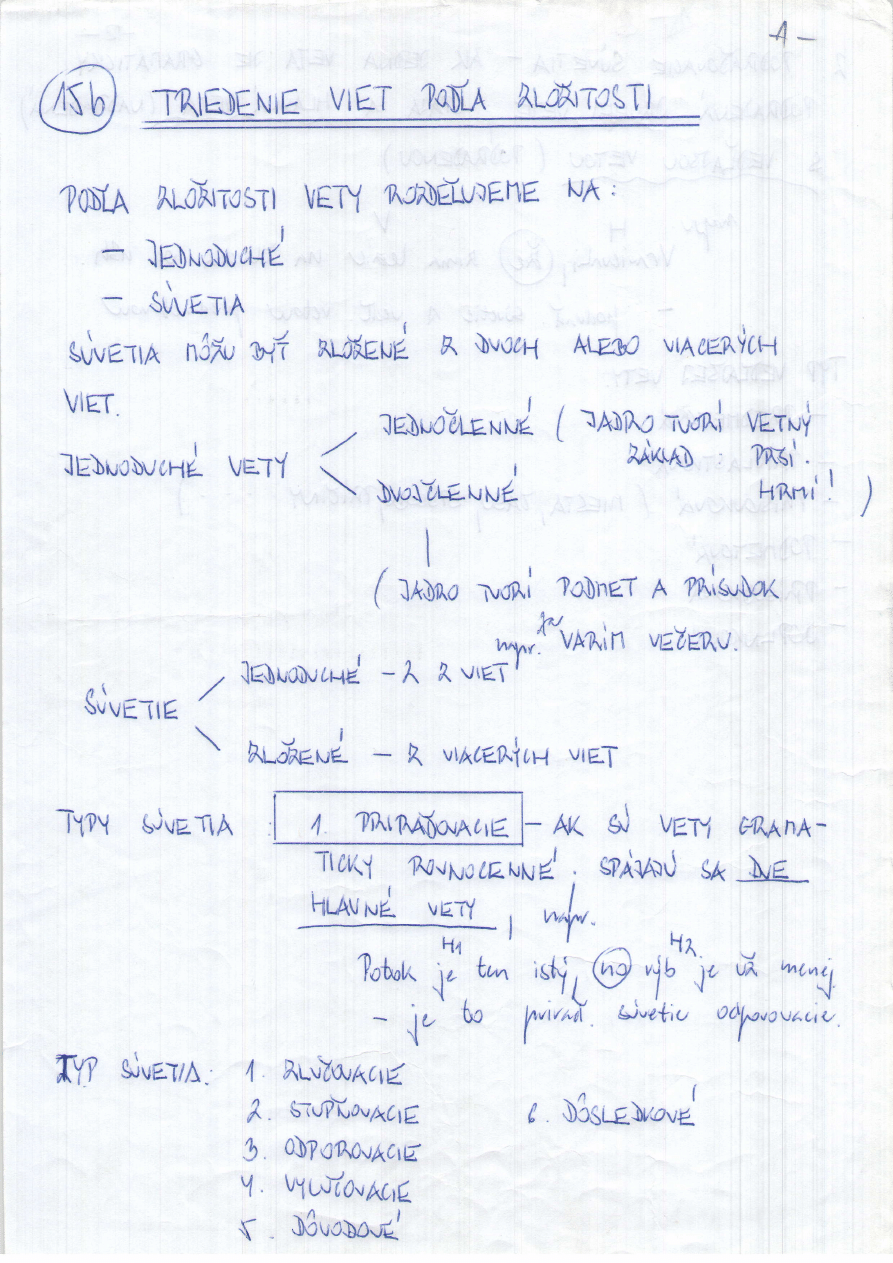 - 1 -
15b TRIEDENIE VIET PODĽA ZLOŽITOSTI
PODĽA ZLOŽITOSTI VETY ROZDEĽUJEME NA:
- JEDNODUCHÉ
- SÚVETIA
SÚVETIA MÔŽU BYŤ ZLOŽENÉ Z DVOCH ALEBO VIACERÝCH
VIET.
JEDNODUCHÉ VETY
JEDNOČLENNÉ ( JADRO TVORÍ VETNÝ
ZÁKLAD. PRŠÍ.
HRMÍ! )
DVOJČLENNÉ
( JADRO TVORÍ PODMET A PRÍSUDOK
napr. Ja VARÍM VEČERU.
SÚVETIE
JEDNODUCHÉ - Z 2 VIET
ZLOŽENÉ - Z VIACERÝCH VIET
TYPY SÚVETIA : 1. PRIRAĎOVACIE - AK SÚ VETY GRAMA-
TICKY ROVNOCENNÉ. SPÁJAJÚ SA DVE
HLAVNÉ VETY, napr.
H1 H2
Potok je ten istý, no rýb je už menej.
- je to priraď. súvetie odporovacie.
TYP SÚVETIA: 1. ZLUČOVACIE
2. STUPŇOVACIE 6. DÔSLEDKOVÉ
3. ODPOROVACIE
4. VYLUČOVACIE
5. DÔVODOVÉ